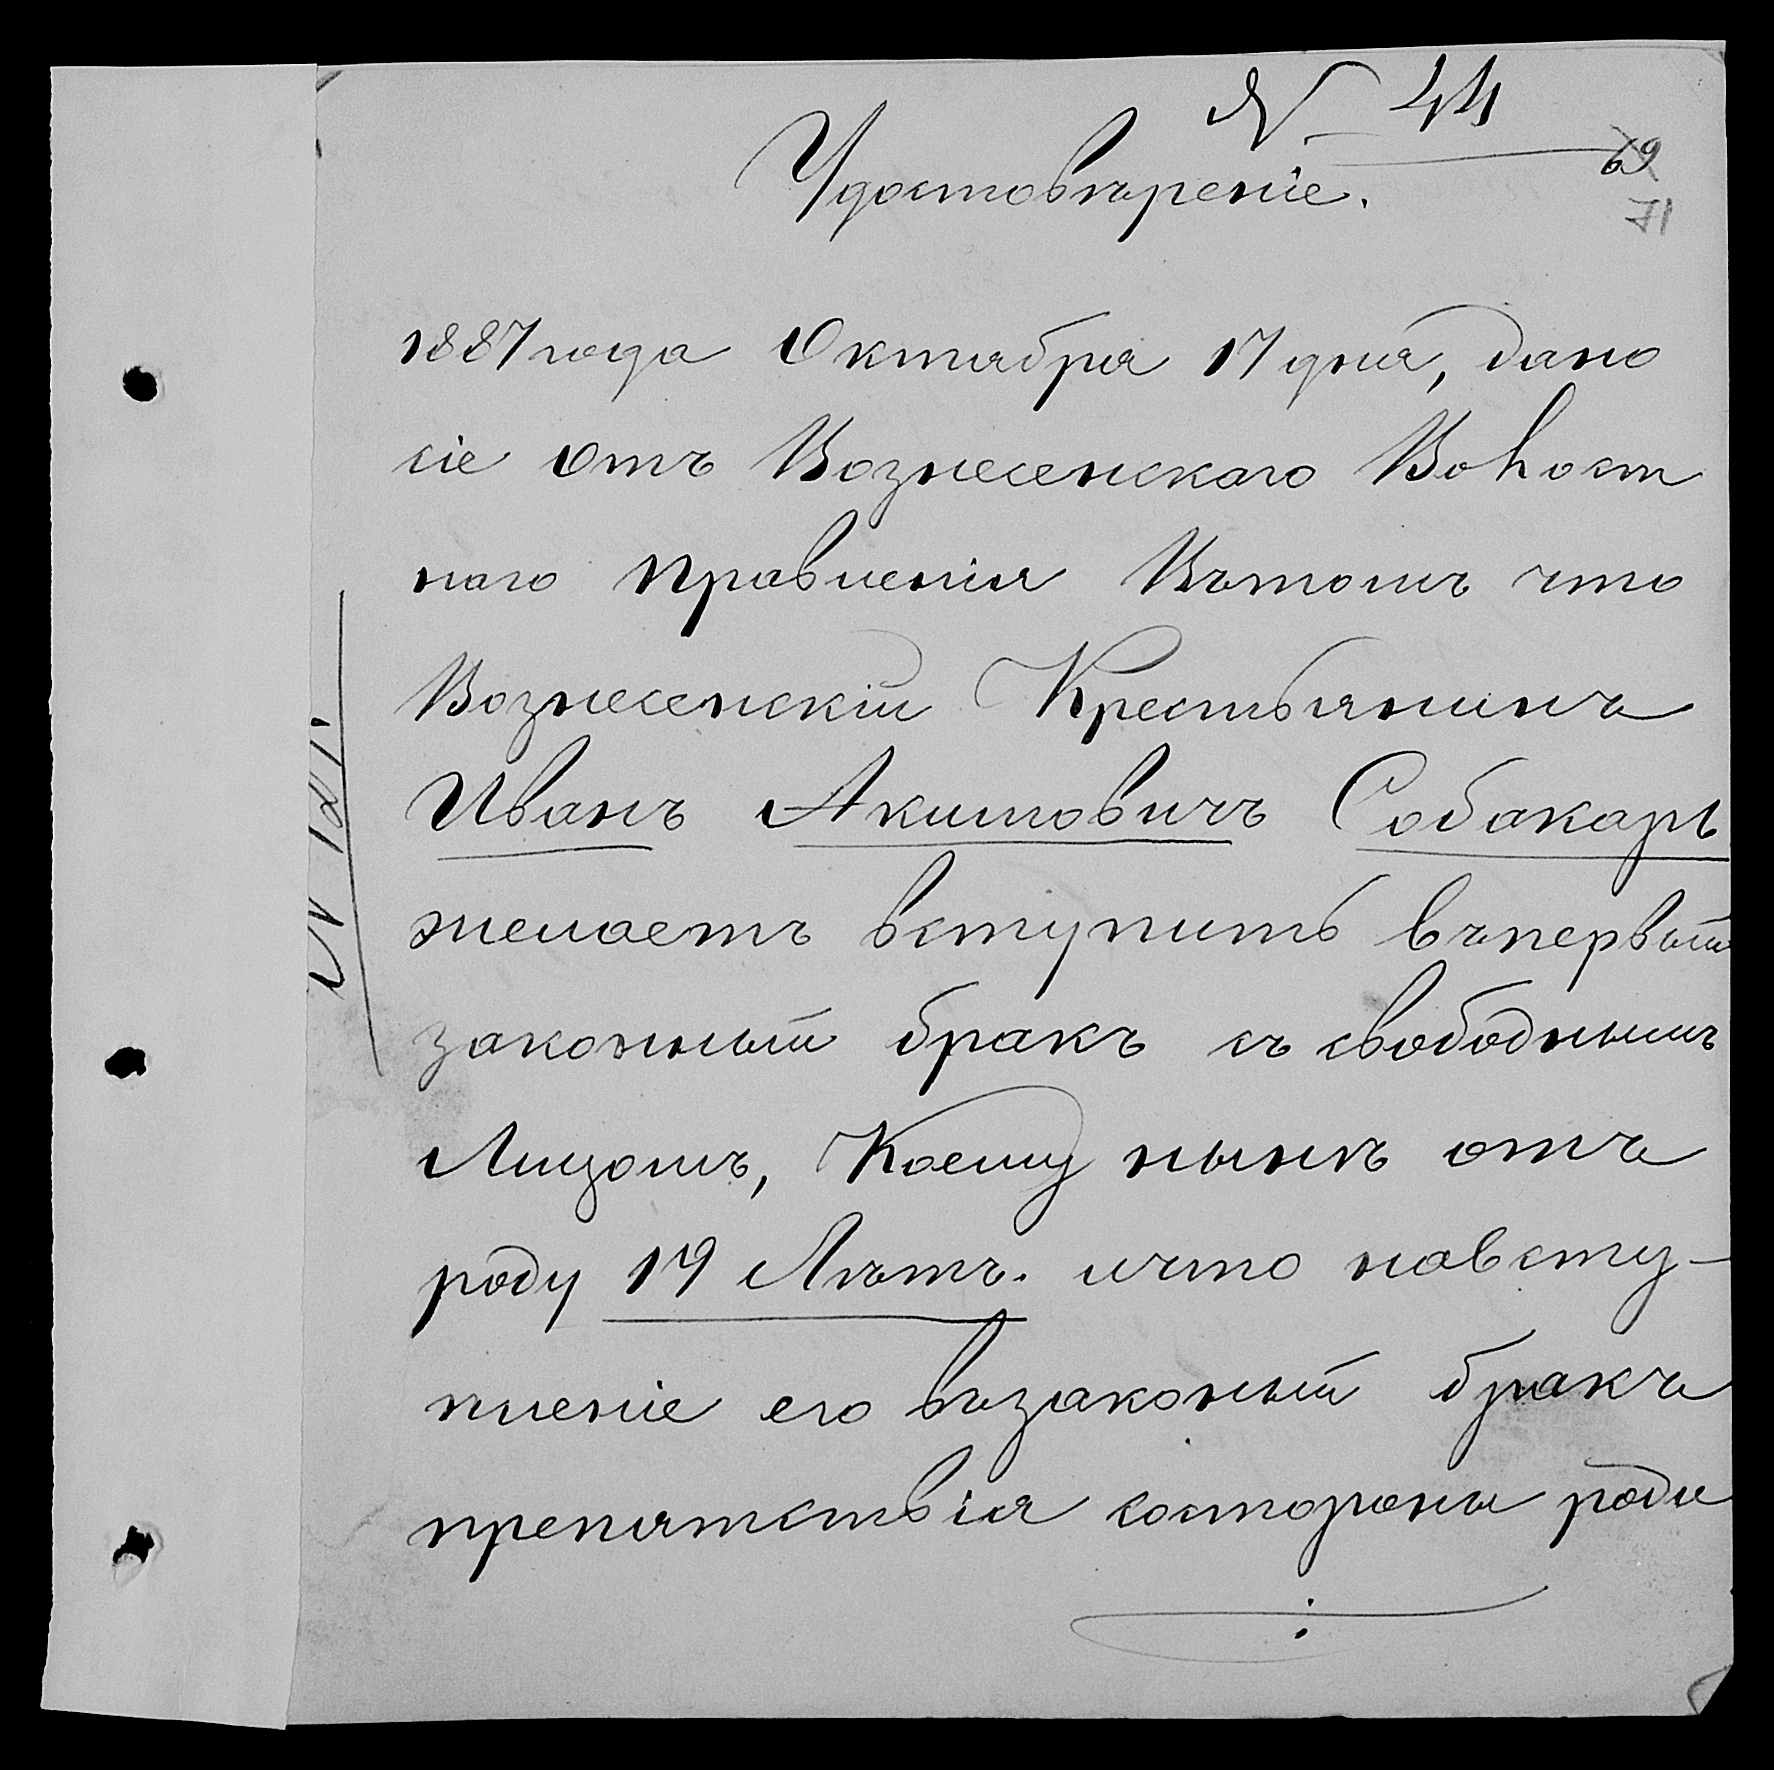 № 44
69
71
Удостовѣреніе.
1887 года Октября 17 дня, дано
сіе Отъ Вознесенскаго Волост
наго правленія Вътомъ что
Вознесенскій Крестьянинъ
Иванъ Акимовичъ Собакарь
желаетъ вступить въпервый
законный бракъ съ свободнымъ
Лицомъ, Коему нынѣ отъ
роду 19 Лѣтъ. ичто навсту-
пленіе его възаконый бракъ
препятствія состороны роди